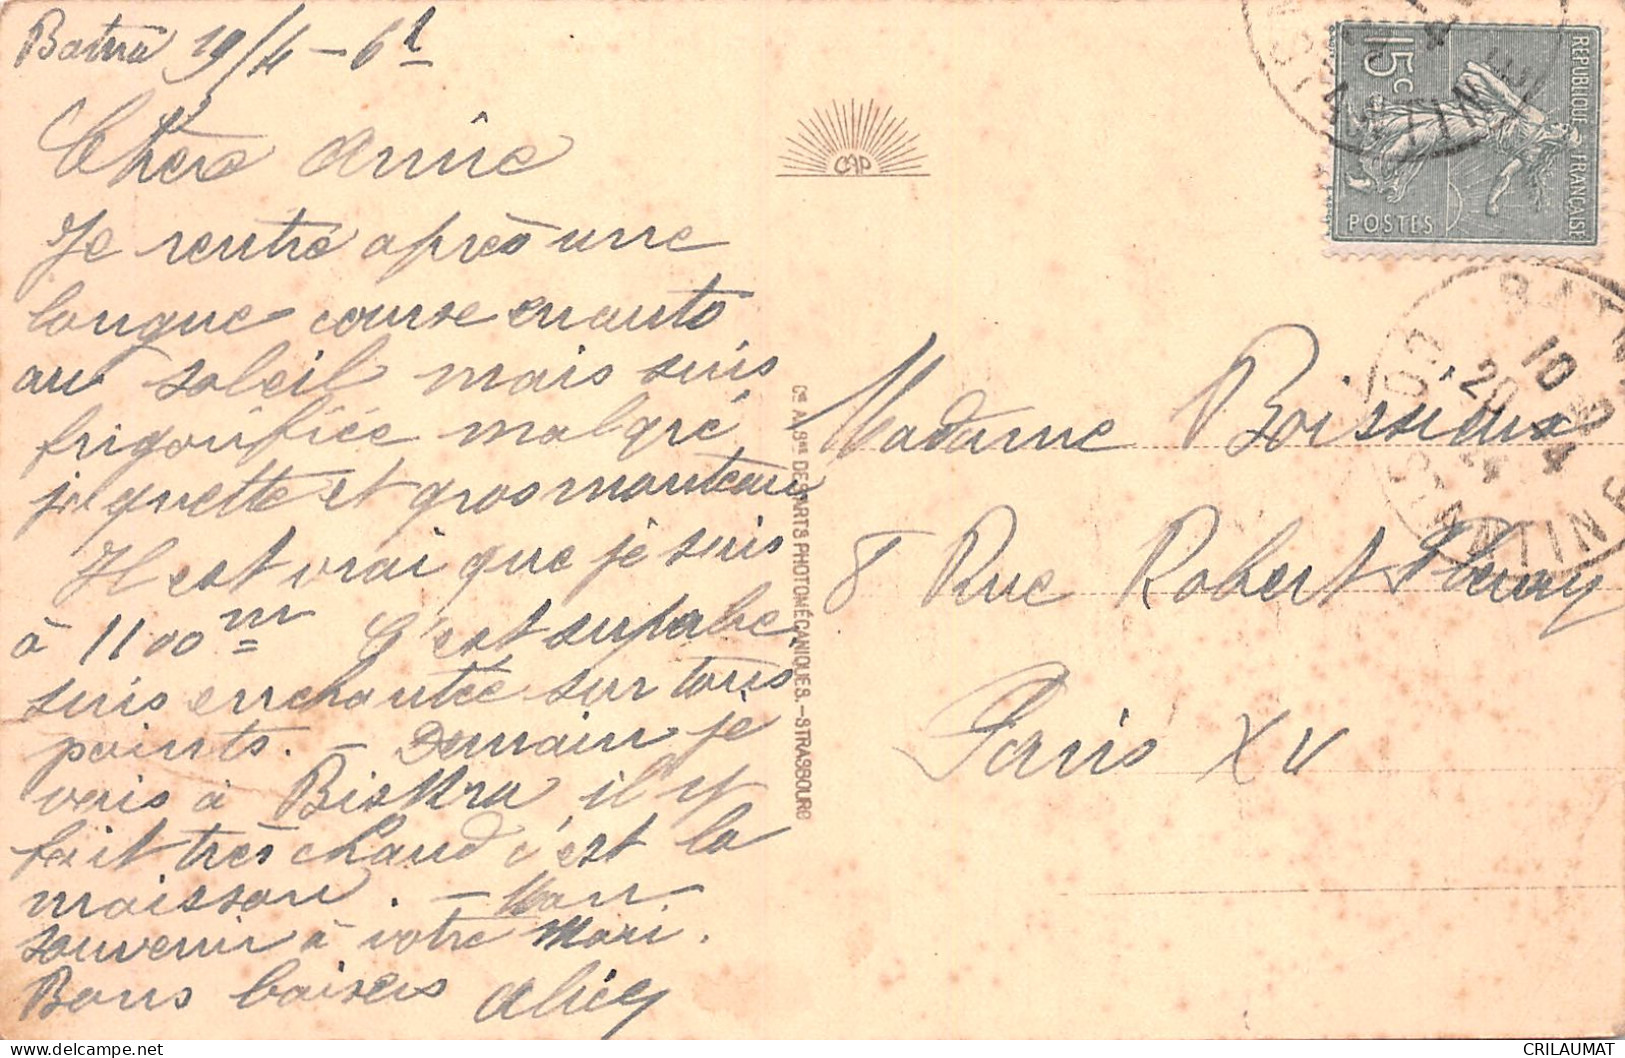 Batna 19/4 - 6h
Chère Amie
Je rentre après une
longue course en auto
au soleil mais suis
frigorifiée malgré
jaquette et gros manteau
Il est vrai que je suis
à 1100 m C'est superbe
suis enchantée sur tous
points. - Demain je
vais à Biskra il y
fait très chaud c'est la
maison. - Mon
souvenir à votre Mari.
Bons baisers Alicy
CAP
Cie ALSne DES ARTS PHOTOMÉCANIQUES. - STRASBOURG
15c
RÉPUBLIQUE FRANÇAISE
POSTES
BATNA
10
20 - 4
24
CONSTANTINE
Madame Boissieux
8 Rue Robert Fleury
Paris XV
CRILAUMAT